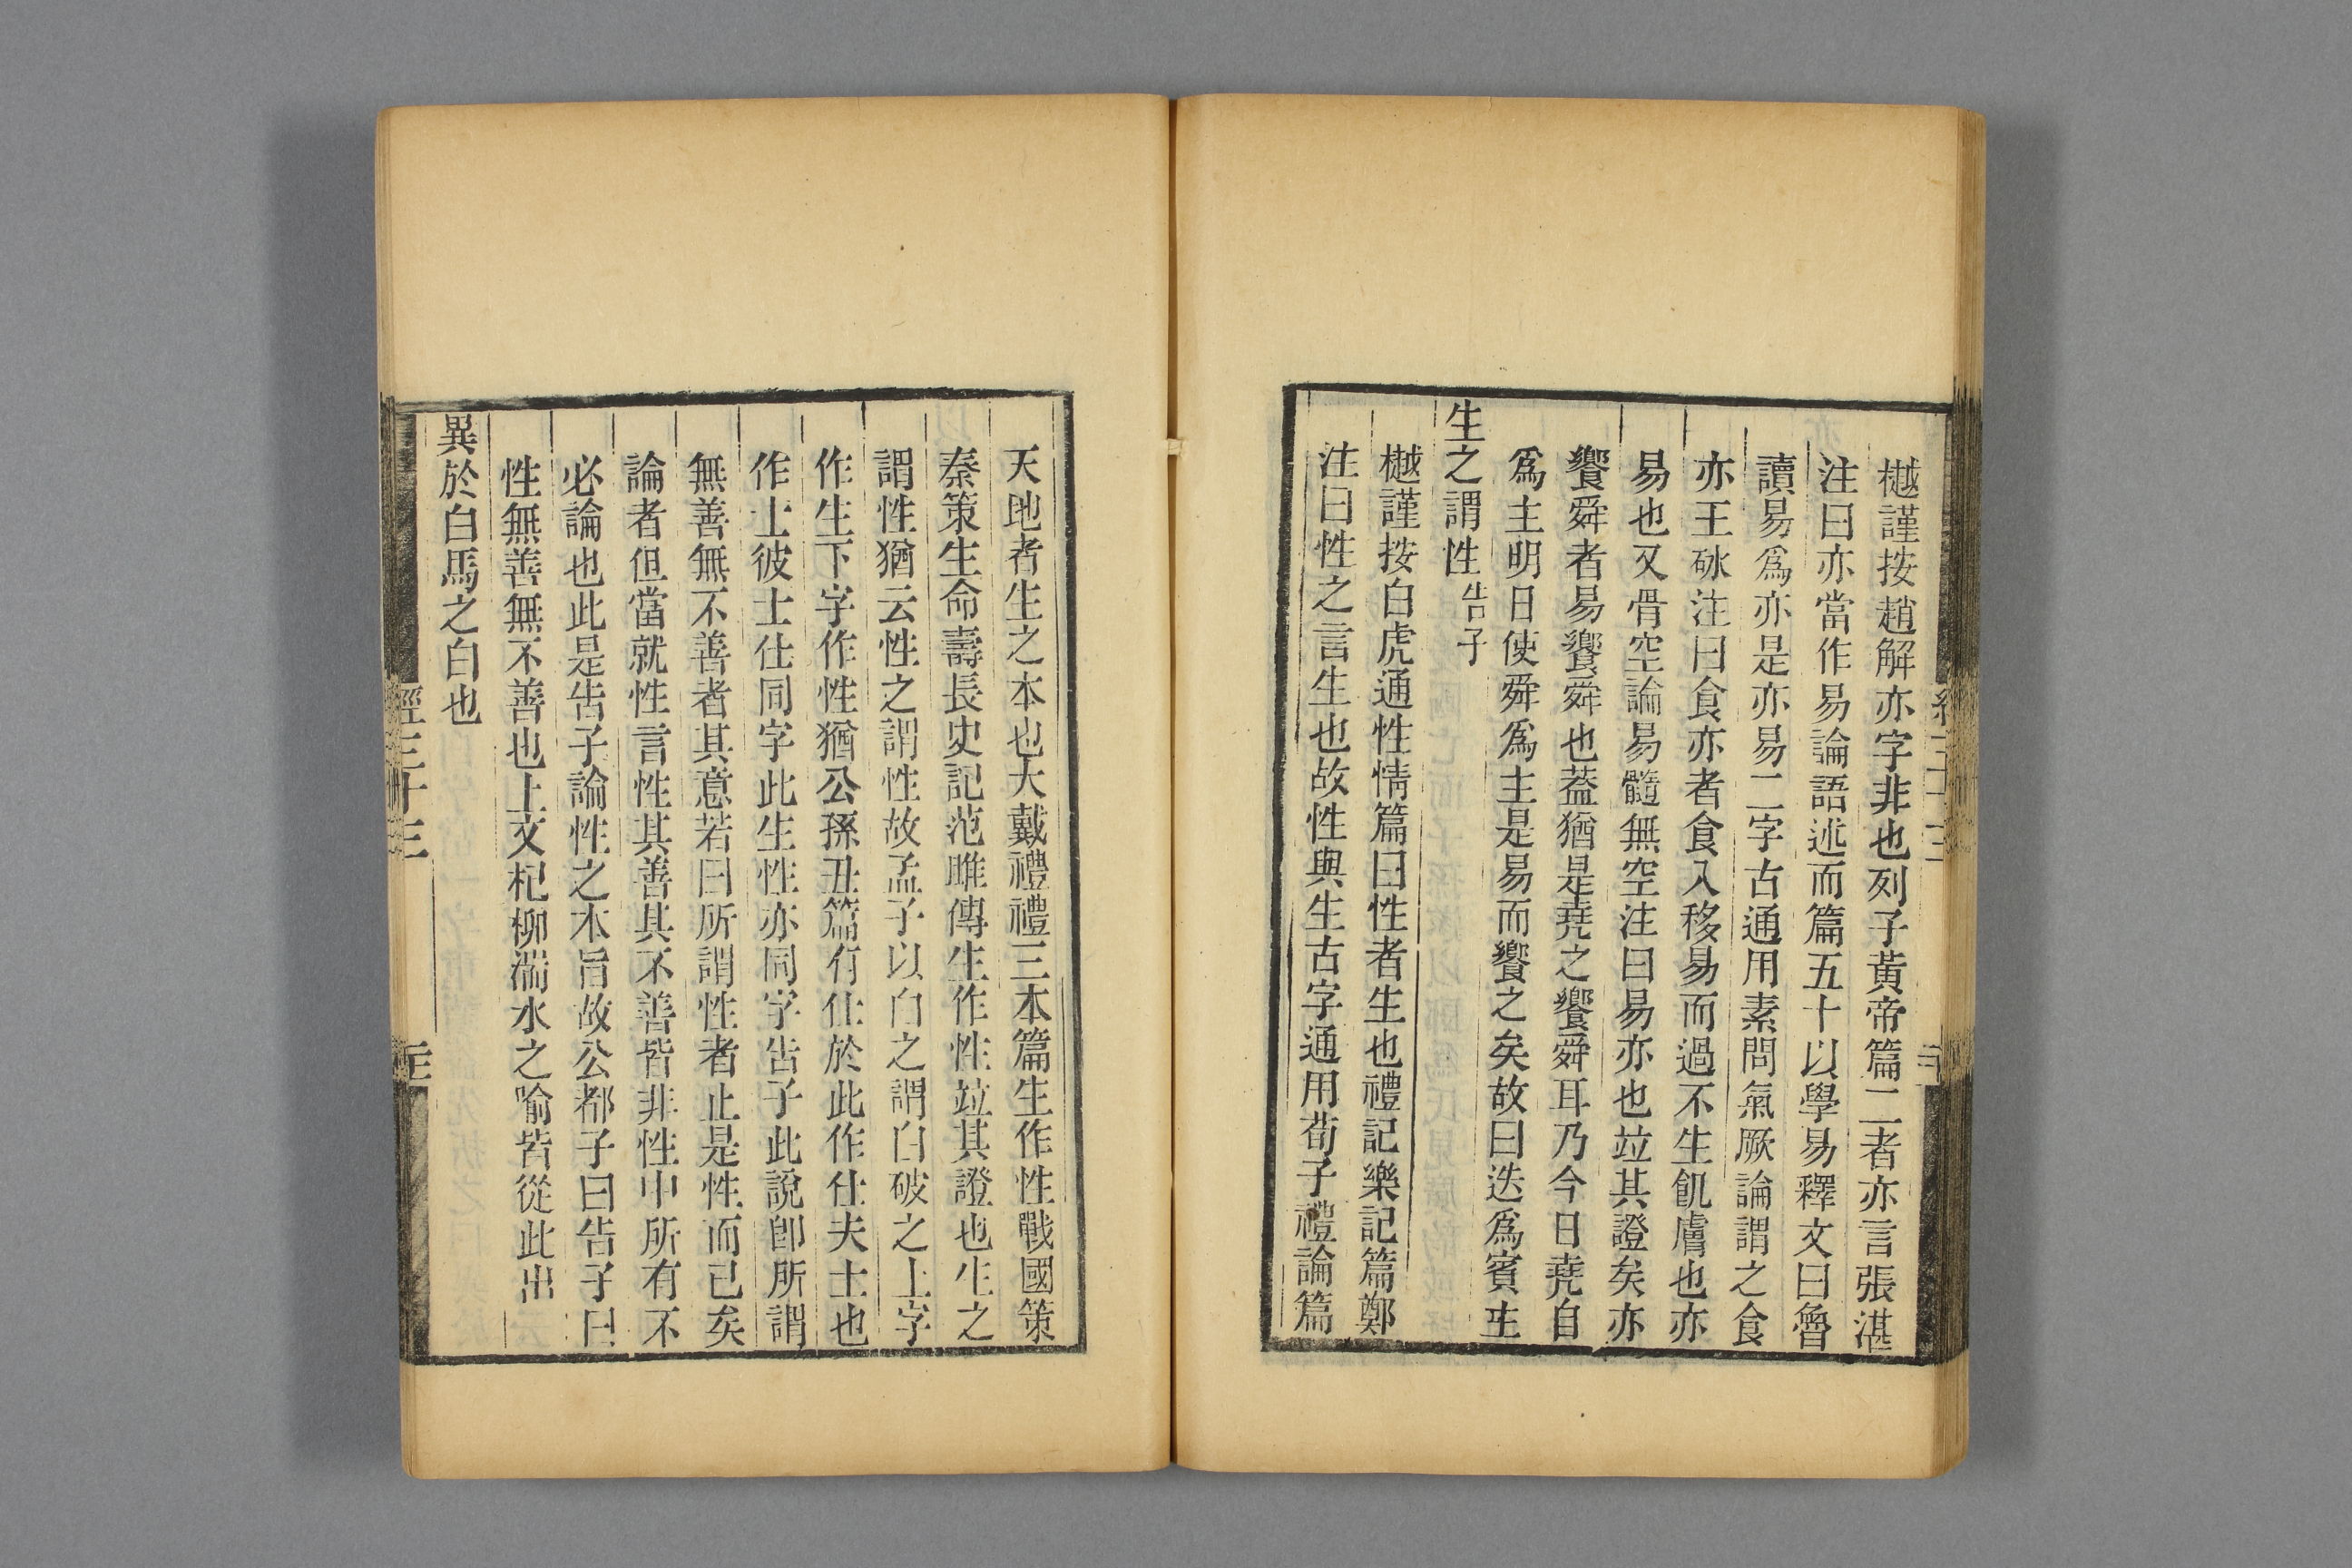 樾謹按趙解亦字非也列子黃帝篇二者亦言張湛
注曰亦當作易論語述而篇五十以學易釋文曰魯
讀易爲亦是亦易二字古通用素問氣厥論謂之食
亦王砅注曰食亦者食入移易而過不生肌膚也亦
易也又骨空論易髓無空注曰易亦也竝其證矣亦
饗舜者易饗舜也蓋猶是堯之饗舜耳乃今日堯自
爲主明日使舜爲主是易而饗之矣故曰迭爲賓主
生之謂性告子
樾謹按白虎通性情篇曰性者生也禮記樂記篇鄭
注曰性之言生也故性與生古字通用荀子禮論篇
天地者生之本也大戴禮禮三本篇生作性戰國策
秦策生命壽長史記范雎傳生作性竝其證也生之
謂性猶云性之謂性故孟子以白之謂白破之上字
作生下字作性猶公孫丑篇有仕於此作仕夫士也
作士彼士仕同字此生性亦同字告子此說卽所謂
無善無不善者其意若曰所謂性者止是性而已矣
論者但當就性言性其善其不善皆非性中所有不
必論也此是告子論性之本旨故公都子曰告子曰
性無善無不善也上文杞柳湍水之喻皆從此出
異於白馬之白也
經三十三